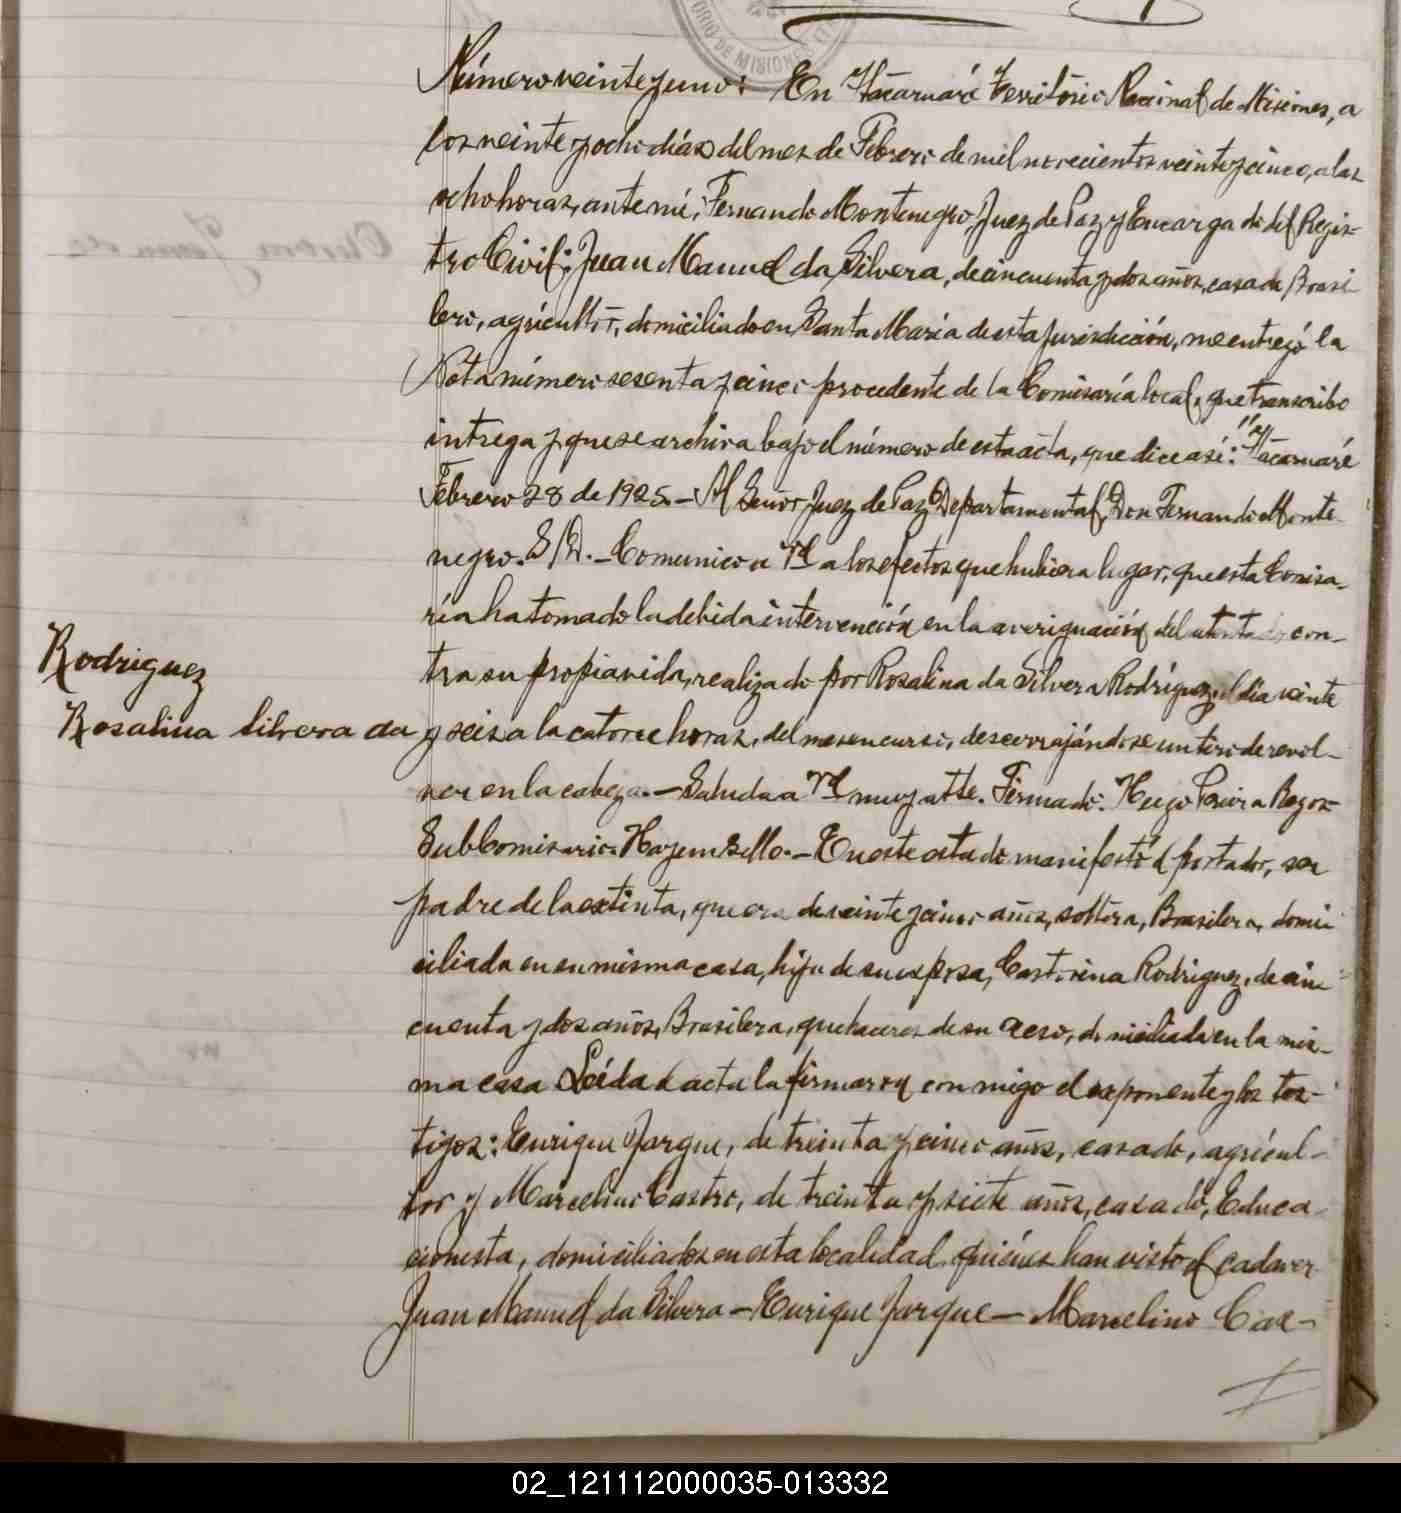 Número veinte y uno: En Itacaruaré Territorio Nacional de Misiones, a
los veinte y ocho días del mes de Febrero de mil novecientos veinte y cinco, a las
ocho horas, ante mí, Fernando Montenegro, Juez de Paz y Encargado del Regis-
tro Civil: Juan Manuel da Silvera, de cincuenta y dos años, casado Brasi-
lero, agricultor, domiciliado en Santa María de esta jurisdicción, me entregó la
Nota número sesenta y cinco procedente de la Comisaría local, que transcribo
íntrega y que se archiva bajo el número de esta acta, que dice así: "Itacaruaré
Febrero 28 de 1925.- Al Señor Juez de Paz Departamental, Don Fernando Monte-
negro. S/D.- Comunico a Vd a los efectos que hubiera lugar, que esta Comisa-
ría ha tomado la debida intervención en la averiguación del atentado con-
tra su propia vida, realizado por Rosalina da Silvera Rodríguez, el día veinte
Rodriguez
Rosalina Silvera da
y seis a la catorce horas, del mes en curso, descerrajándose un tiro de revol-
ver en la cabeza.- Saluda a Vd muy atte. Firmado: Hugo Rojas
Sub Comisario. Hay un sello.- En este estado manifestó el portador, ser
padre de la extinta, que era de veinte y cinco años, soltera, Brasilera, domi
ciliada en su misma casa, hija de su esposa, Castorina Rodriguez, de cin
cuenta y dos años, Brasilera, quehaceres de su sexo, domiciliada en la mis-
ma casa Leída el acta la firmaron conmigo el exponente y los tes-
tigos: Enrique Jarque, de treinta y cinco años, casado, agricul-
tor y Marcelino Castro, de treinta y siete años, casado, Educa-
cionista, domiciliados en esta localidad, quiénes han visto el cadaver
Juan Manuel da Silvera - Enrique Jarque - Marcelino Cas-
02_121112000035-013332